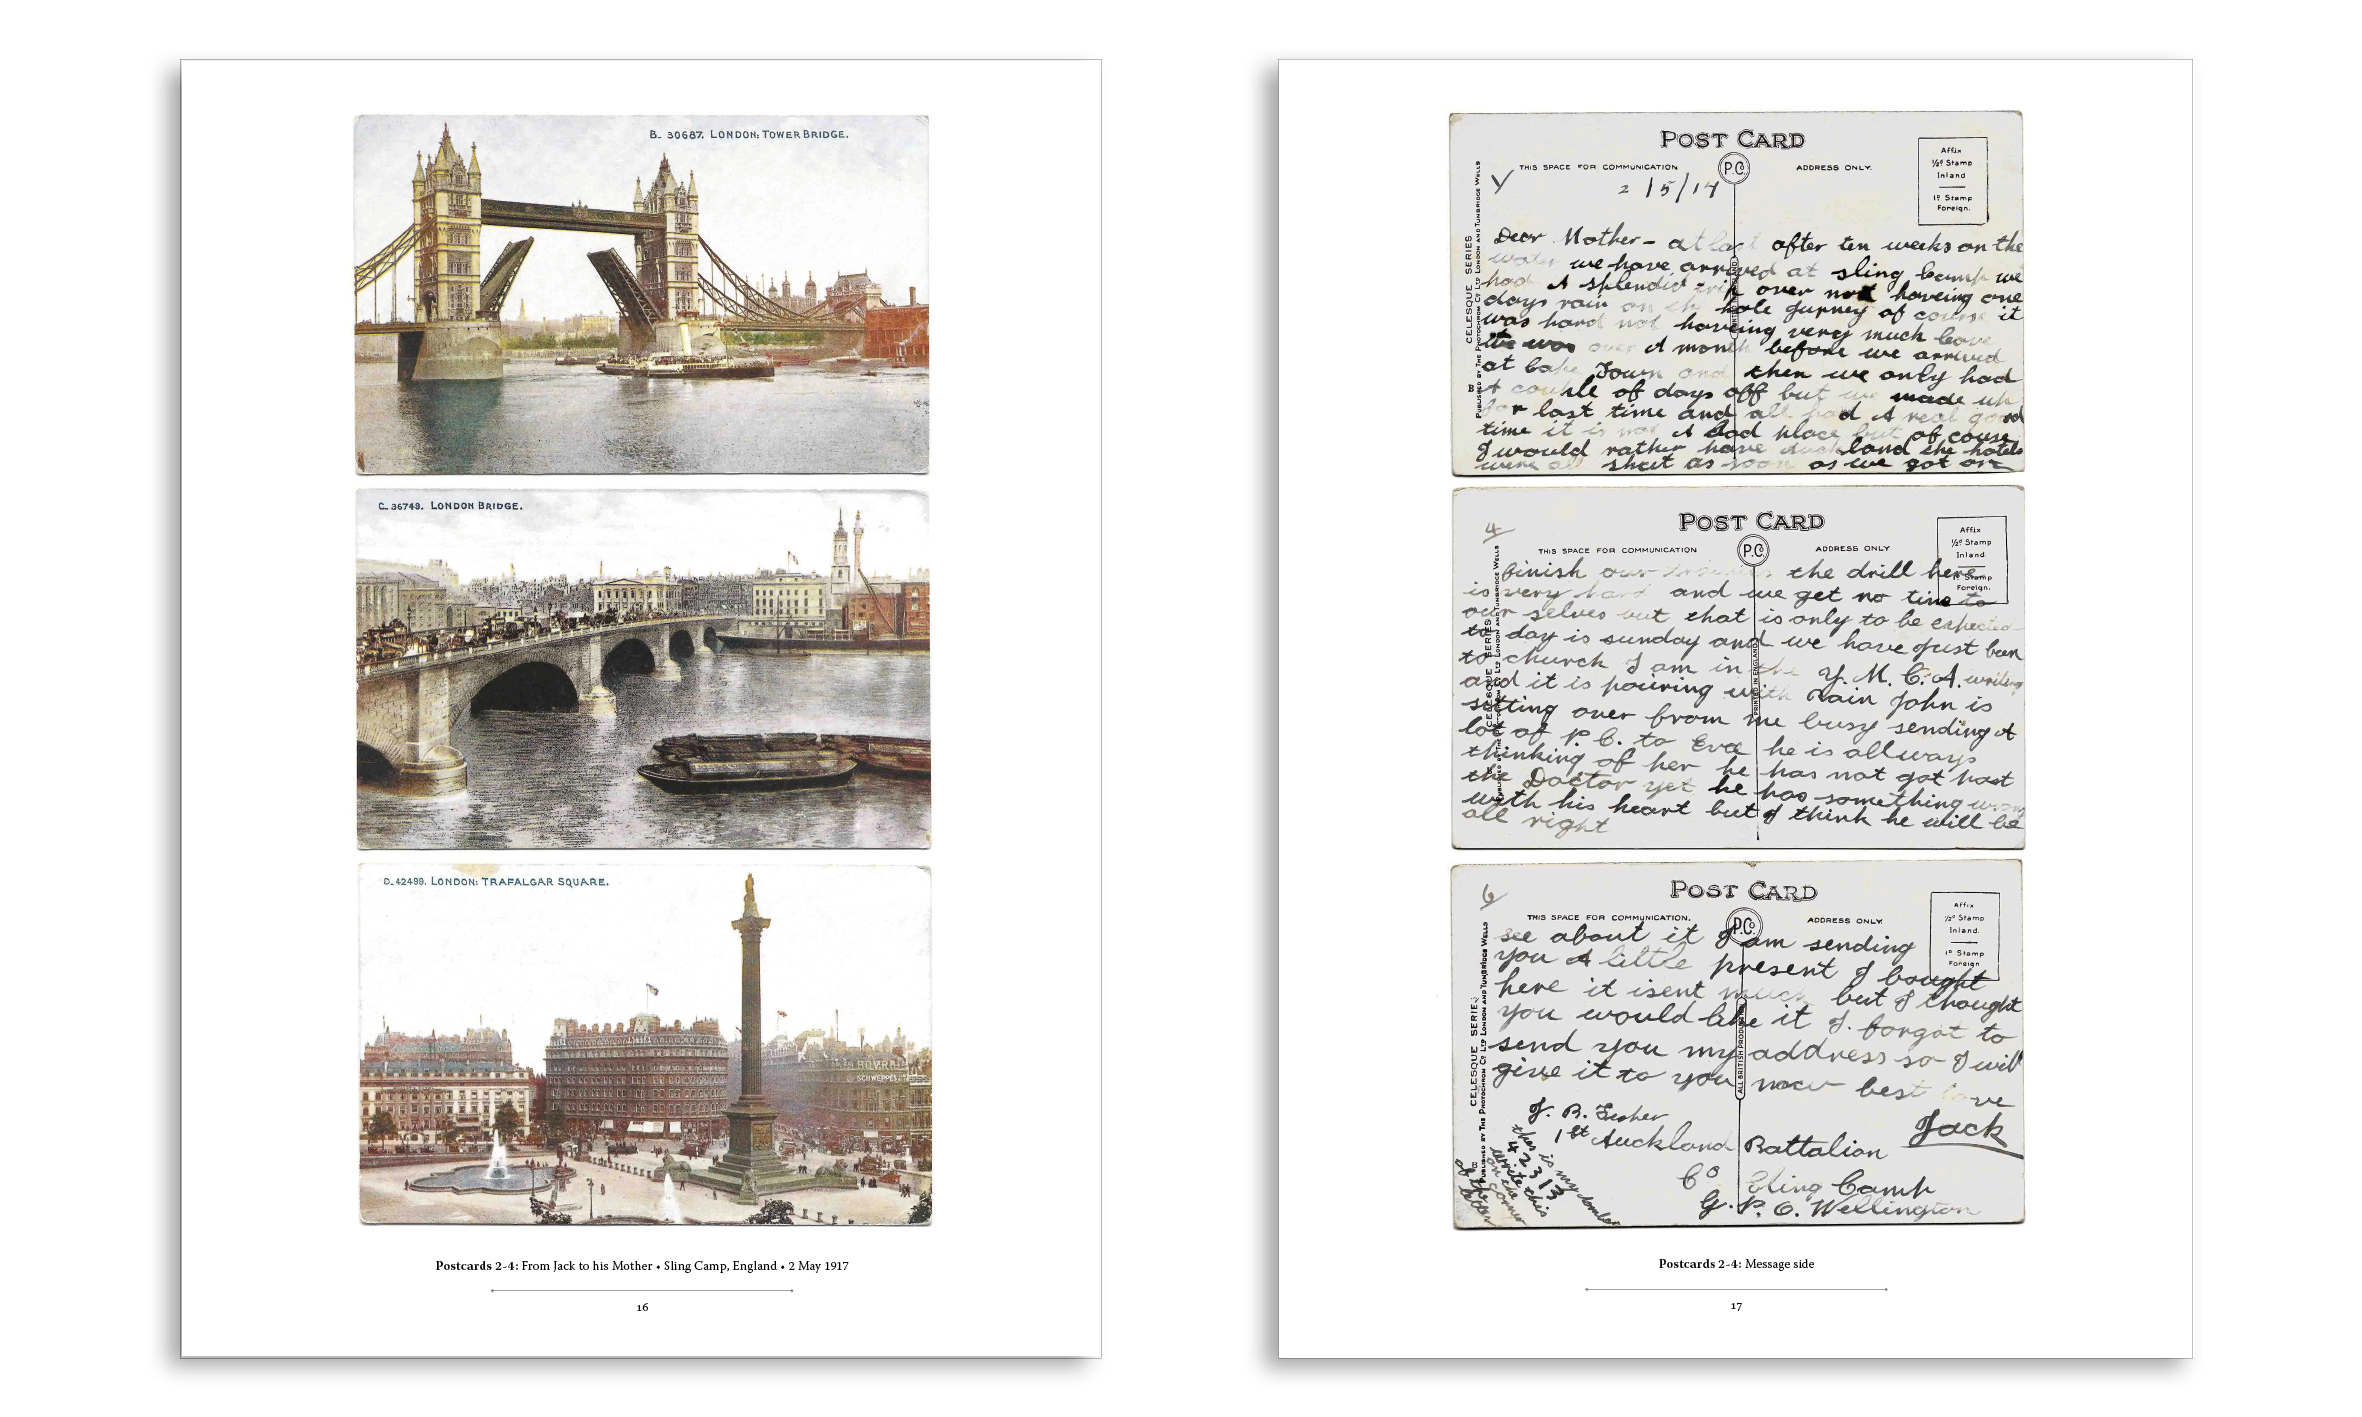 B_ 30687. LONDON: TOWER BRIDGE.
C_ 36749. LONDON BRIDGE.
D_ 42499. LONDON: TRAFALGAR SQUARE.
BOVRIL
SCHWEPPES
Postcards 2-4: From Jack to his Mother • Sling Camp, England • 2 May 1917
16
POST CARD
THIS SPACE FOR COMMUNICATION
P.Cº
ADDRESS ONLY.
Affix
½ᵈ Stamp
Inland
1ᵈ Stamp
Foreign.
CELESQUE SERIES
PUBLISHED BY THE PHOTOCHROM Cº Lᵀᴰ LONDON AND TUNBRIDGE WELLS
2/5/17
Dear Mother - at last after ten weeks on the
water we have arrived at sling Camp we
had A splendid trip over not haveing one
days rain on the hole gurney of course it
was hard not haveing very much leave
over A month before we arrived
at Cape Town and then we only had
A couple of days off but we made up
for last time and all had A real good
time it is not A bad place but of couse
I would rather have Auckland the hotels
were all shut as soon as we got on
4
POST CARD
THIS SPACE FOR COMMUNICATION
P.Cº
ADDRESS ONLY
Affix
½ᵈ Stamp
Inland
1ᵈ Stamp
Foreign.
CELESQUE SERIES
PUBLISHED BY THE PHOTOCHROM Cº Lᵀᴰ LONDON AND TUNBRIDGE WELLS
PRINTED IN ENGLAND
finish our the drill here
is very hard and we get no time to
our selves but that is only to be expected
to day is sunday and we have just been
to church I am in the Y.M.C.A. writing
and it is pouring with Rain John is
sitting over from me busy sending A
lot of P.C. to Eva he is allways
thinking of her he has not got past
the Doctor yet he has something wrong
with his heart but I think he will be
all right
6
POST CARD
THIS SPACE FOR COMMUNICATION.
P.Cº
ADDRESS ONLY.
Affix
½ᵈ Stamp
Inland.
1ᵈ Stamp
Foreign
CELESQUE SERIES
PUBLISHED BY THE PHOTOCHROM Cº Lᵀᴰ LONDON AND TUNBRIDGE WELLS
ALL BRITISH PRODUCTION
see about it I am sending
you A little present I bought
here it isent much but I thought
you would like it I forgot to
send you my address so I will
give it to you now best love
Jack
J. R.
1st Auckland Battalion
Cº Sling Camp
G.P.O. Wellington
this is my number
42313
write this
on the corner
of the letter
Postcards 2-4: Message side
17